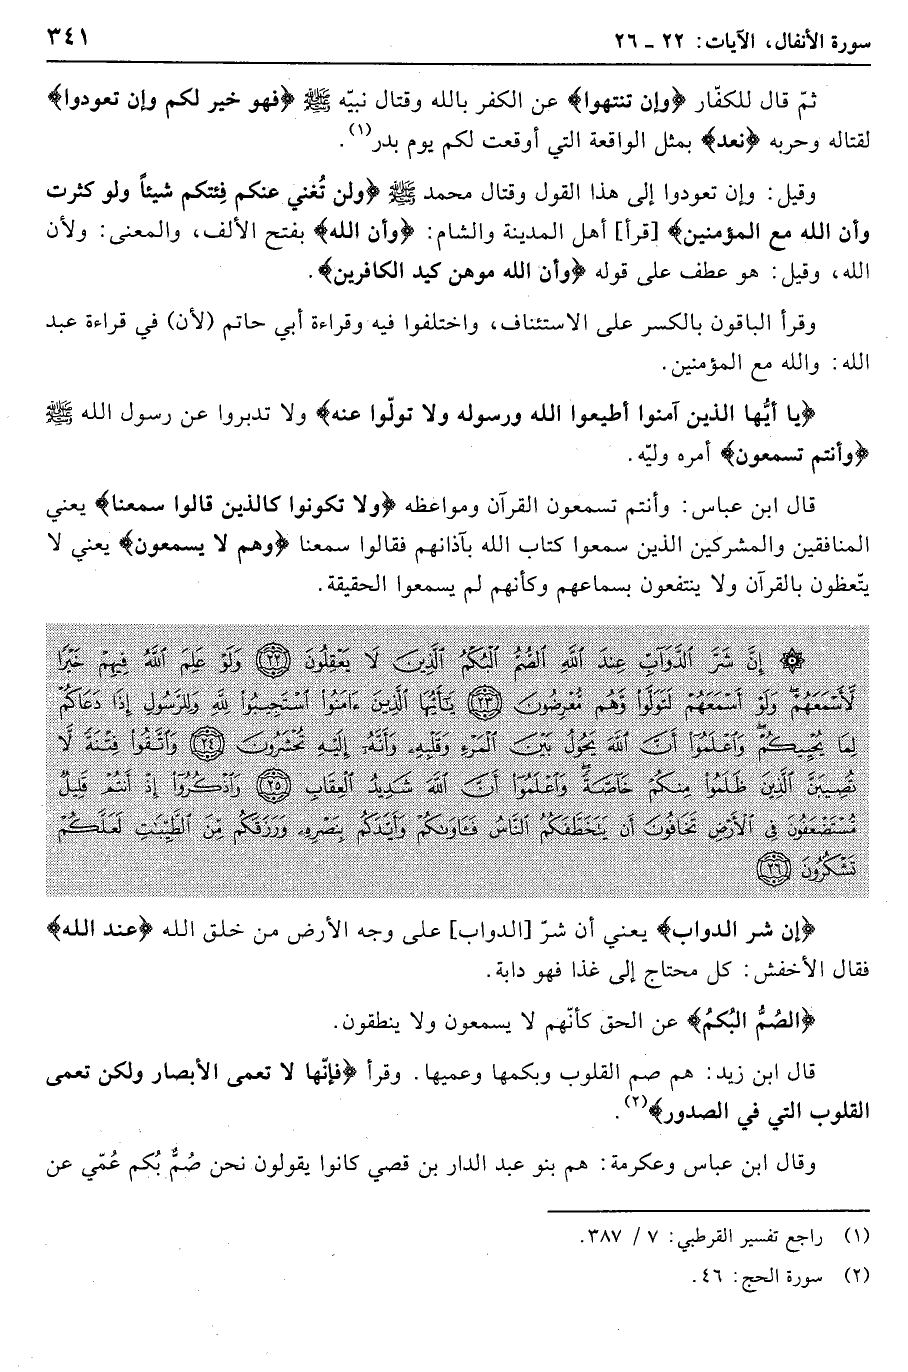 سورة الأنفال، الآيات: ٢٢ ـ ٢٦ ٣٤١
ثمّ قال للكفّار ﴿وإن تنتهوا﴾ عن الكفر بالله وقتال نبيّه ﷺ ﴿فهو خير لكم وإن تعودوا﴾
لقتاله وحربه ﴿نعد﴾ بمثل الواقعة التي أوقعت لكم يوم بدر(١).
وقيل: وإن تعودوا إلى هذا القول وقتال محمد ﷺ ﴿ولن تُغني عنكم فِئتكم شيئاً ولو كثرت
وأن الله مع المؤمنين﴾ [قرأ] أهل المدينة والشام: ﴿وأن الله﴾ بفتح الألف، والمعنى: ولأن
الله، وقيل: هو عطف على قوله ﴿وأن الله موهن كيد الكافرين﴾.
وقرأ الباقون بالكسر على الاستئناف، واختلفوا فيه وقراءة أبي حاتم (لأن) في قراءة عبد
الله: والله مع المؤمنين.
﴿يا أيُّها الذين آمنوا أطيعوا الله ورسوله ولا تولّوا عنه﴾ ولا تدبروا عن رسول الله ﷺ
﴿وأنتم تسمعون﴾ أمره وليّه.
قال ابن عباس: وأنتم تسمعون القرآن ومواعظه ﴿ولا تكونوا كالذين قالوا سمعنا﴾ يعني
المنافقين والمشركين الذين سمعوا كتاب الله بآذانهم فقالوا سمعنا ﴿وهم لا يسمعون﴾ يعني لا
يتّعظون بالقرآن ولا ينتفعون بسماعهم وكأنهم لم يسمعوا الحقيقة.
۞ إِنَّ شَرَّ ٱلدَّوَآبِّ عِندَ ٱللَّهِ ٱلصُّمُّ ٱلْبُكْمُ ٱلَّذِينَ لَا يَعْقِلُونَ ﴿٢٢﴾ وَلَوْ عَلِمَ ٱللَّهُ فِيهِمْ خَيْرًا
لَّأَسْمَعَهُمْ ۖ وَلَوْ أَسْمَعَهُمْ لَتَوَلَّوا۟ وَّهُم مُّعْرِضُونَ ﴿٢٣﴾ يَـٰٓأَيُّهَا ٱلَّذِينَ ءَامَنُوا۟ ٱسْتَجِيبُوا۟ لِلَّهِ وَلِلرَّسُولِ إِذَا دَعَاكُمْ
لِمَا يُحْيِيكُمْ ۖ وَٱعْلَمُوٓا۟ أَنَّ ٱللَّهَ يَحُولُ بَيْنَ ٱلْمَرْءِ وَقَلْبِهِۦ وَأَنَّهُۥٓ إِلَيْهِ تُحْشَرُونَ ﴿٢٤﴾ وَٱتَّقُوا۟ فِتْنَةً لَّا
تُصِيبَنَّ ٱلَّذِينَ ظَلَمُوا۟ مِنكُمْ خَآصَّةً ۖ وَٱعْلَمُوٓا۟ أَنَّ ٱللَّهَ شَدِيدُ ٱلْعِقَابِ ﴿٢٥﴾ وَٱذْكُرُوٓا۟ إِذْ أَنتُمْ قَلِيلٌ
مُّسْتَضْعَفُونَ فِى ٱلْأَرْضِ تَخَافُونَ أَن يَتَخَطَّفَكُمُ ٱلنَّاسُ فَـَٔاوَىٰكُمْ وَأَيَّدَكُم بِنَصْرِهِۦ وَرَزَقَكُم مِّنَ ٱلطَّيِّبَـٰتِ لَعَلَّكُمْ
تَشْكُرُونَ ﴿٢٦﴾
﴿إن شر الدواب﴾ يعني أن شرّ [الدواب] على وجه الأرض من خلق الله ﴿عند الله﴾
فقال الأخفش: كل محتاج إلى غذا فهو دابة.
﴿الصُمُّ البُكمُ﴾ عن الحق كأنّهم لا يسمعون ولا ينطقون.
قال ابن زيد: هم صم القلوب وبكمها وعميها. وقرأ ﴿فإنّها لا تعمى الأبصار ولكن تعمى
القلوب التي في الصدور﴾(٢).
وقال ابن عباس وعكرمة: هم بنو عبد الدار بن قصي كانوا يقولون نحن صُمٌّ بُكم عُمّي عن
(١) راجع تفسير القرطبي: ٧ / ٣٨٧.
(٢) سورة الحج: ٤٦.